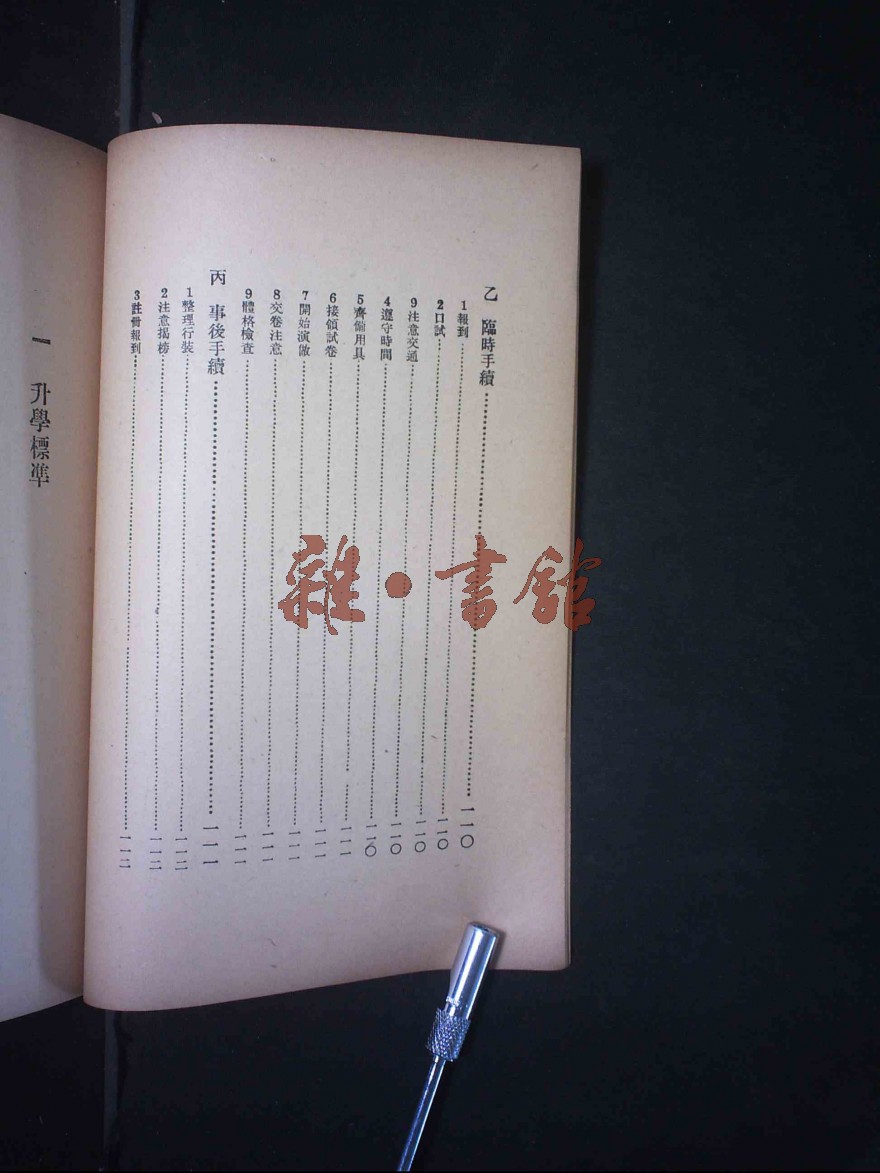 乙 臨時手續………一一〇
1報到………一一〇
2口試………一一〇
9注意交通………一一〇
4遵守時間………一一〇
5齊備用具………一一〇
6接領試卷………一一一
7開始演做………一一一
8交卷注意………一一一
9體格檢查………一一一
丙 事後手續………一一一
1整理行裝………一一二
2注意揭榜………一一二
3註冊報到………一一二
一 升學標準
雜·書館